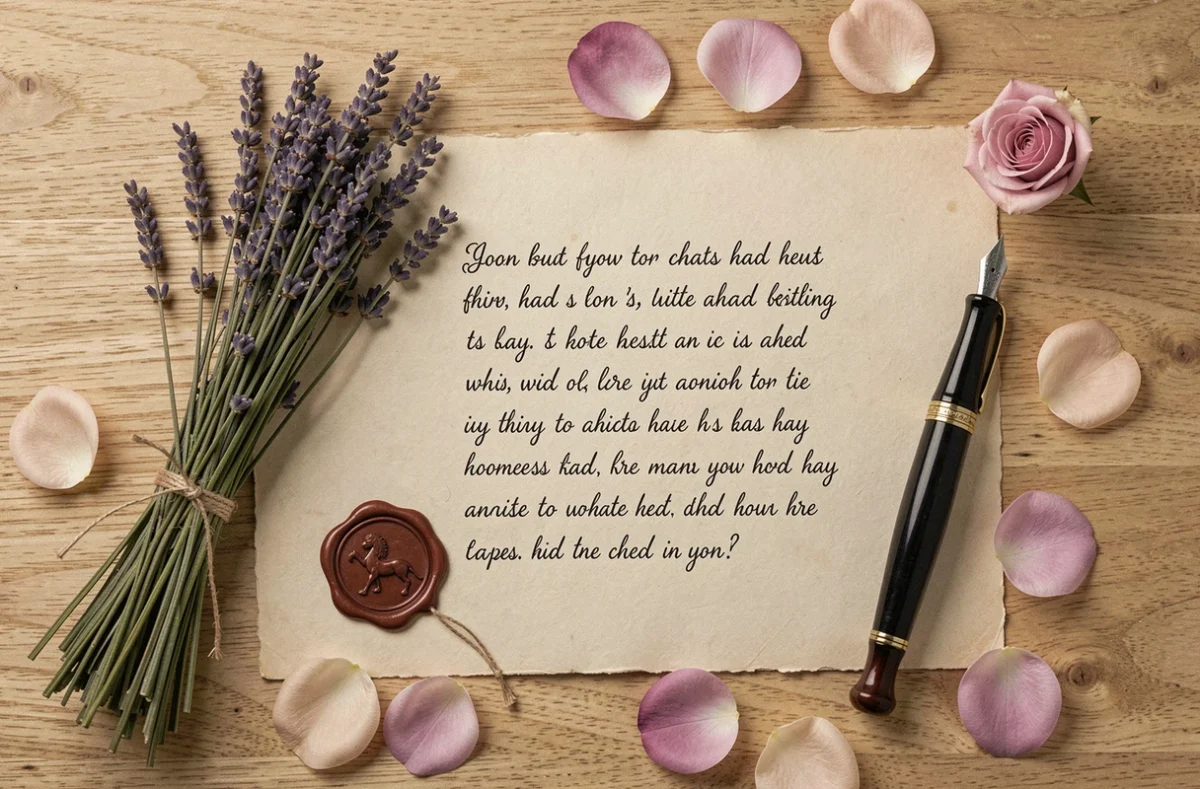 Joon but fyow tor chats had heut
fhiv, had s lon 's, luite ahad beitling
ts bay. t hote hestt an ic is ahed
whis, wid ol, lire jyt aonioh tor tie
iy thiny to ahicta haue hs bas hay
hoomeess kad, hre manı yow hod hay
annite to wohate hed, dhd houn hre
lapes. hid tne ched in yon?